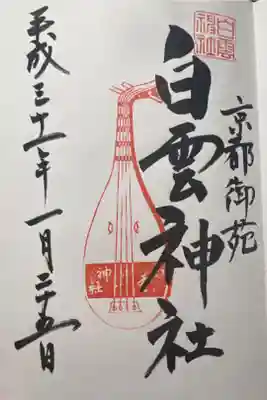 京都御苑
白雲
神社
白雲神社
神社
平成三十一年一月二十五日